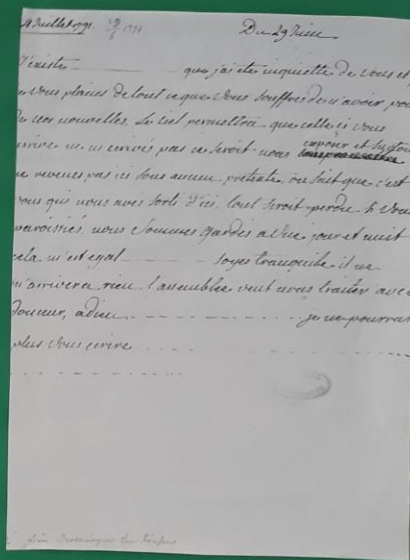 4 Juillet 1791. 29/6 1791 Du 29 Juin
J'existe ___ que j'ai ete inquiette de vous et
je vous plains de tout ce que vous souffres de n'avoir, poin
de nos nouvelles. Le ciel permettra que celle ci vous
arrive ne m'ecrives pas ce seroit nous exposer et surtout
ne revenes pas ici sous aucun pretexte, on sait que c'est
vous qui nous aves sorti d'ici. tout seroit perdu si vous
paroissiés. nous sommes gardes a vue jour et nuit
cela m'est egal ___ soyes tranquille il ne
m'arrivera rien l'assemblée veut nous traiter avec
douceur, adieu ___ je ne pourrai
plus vous ecrire ...